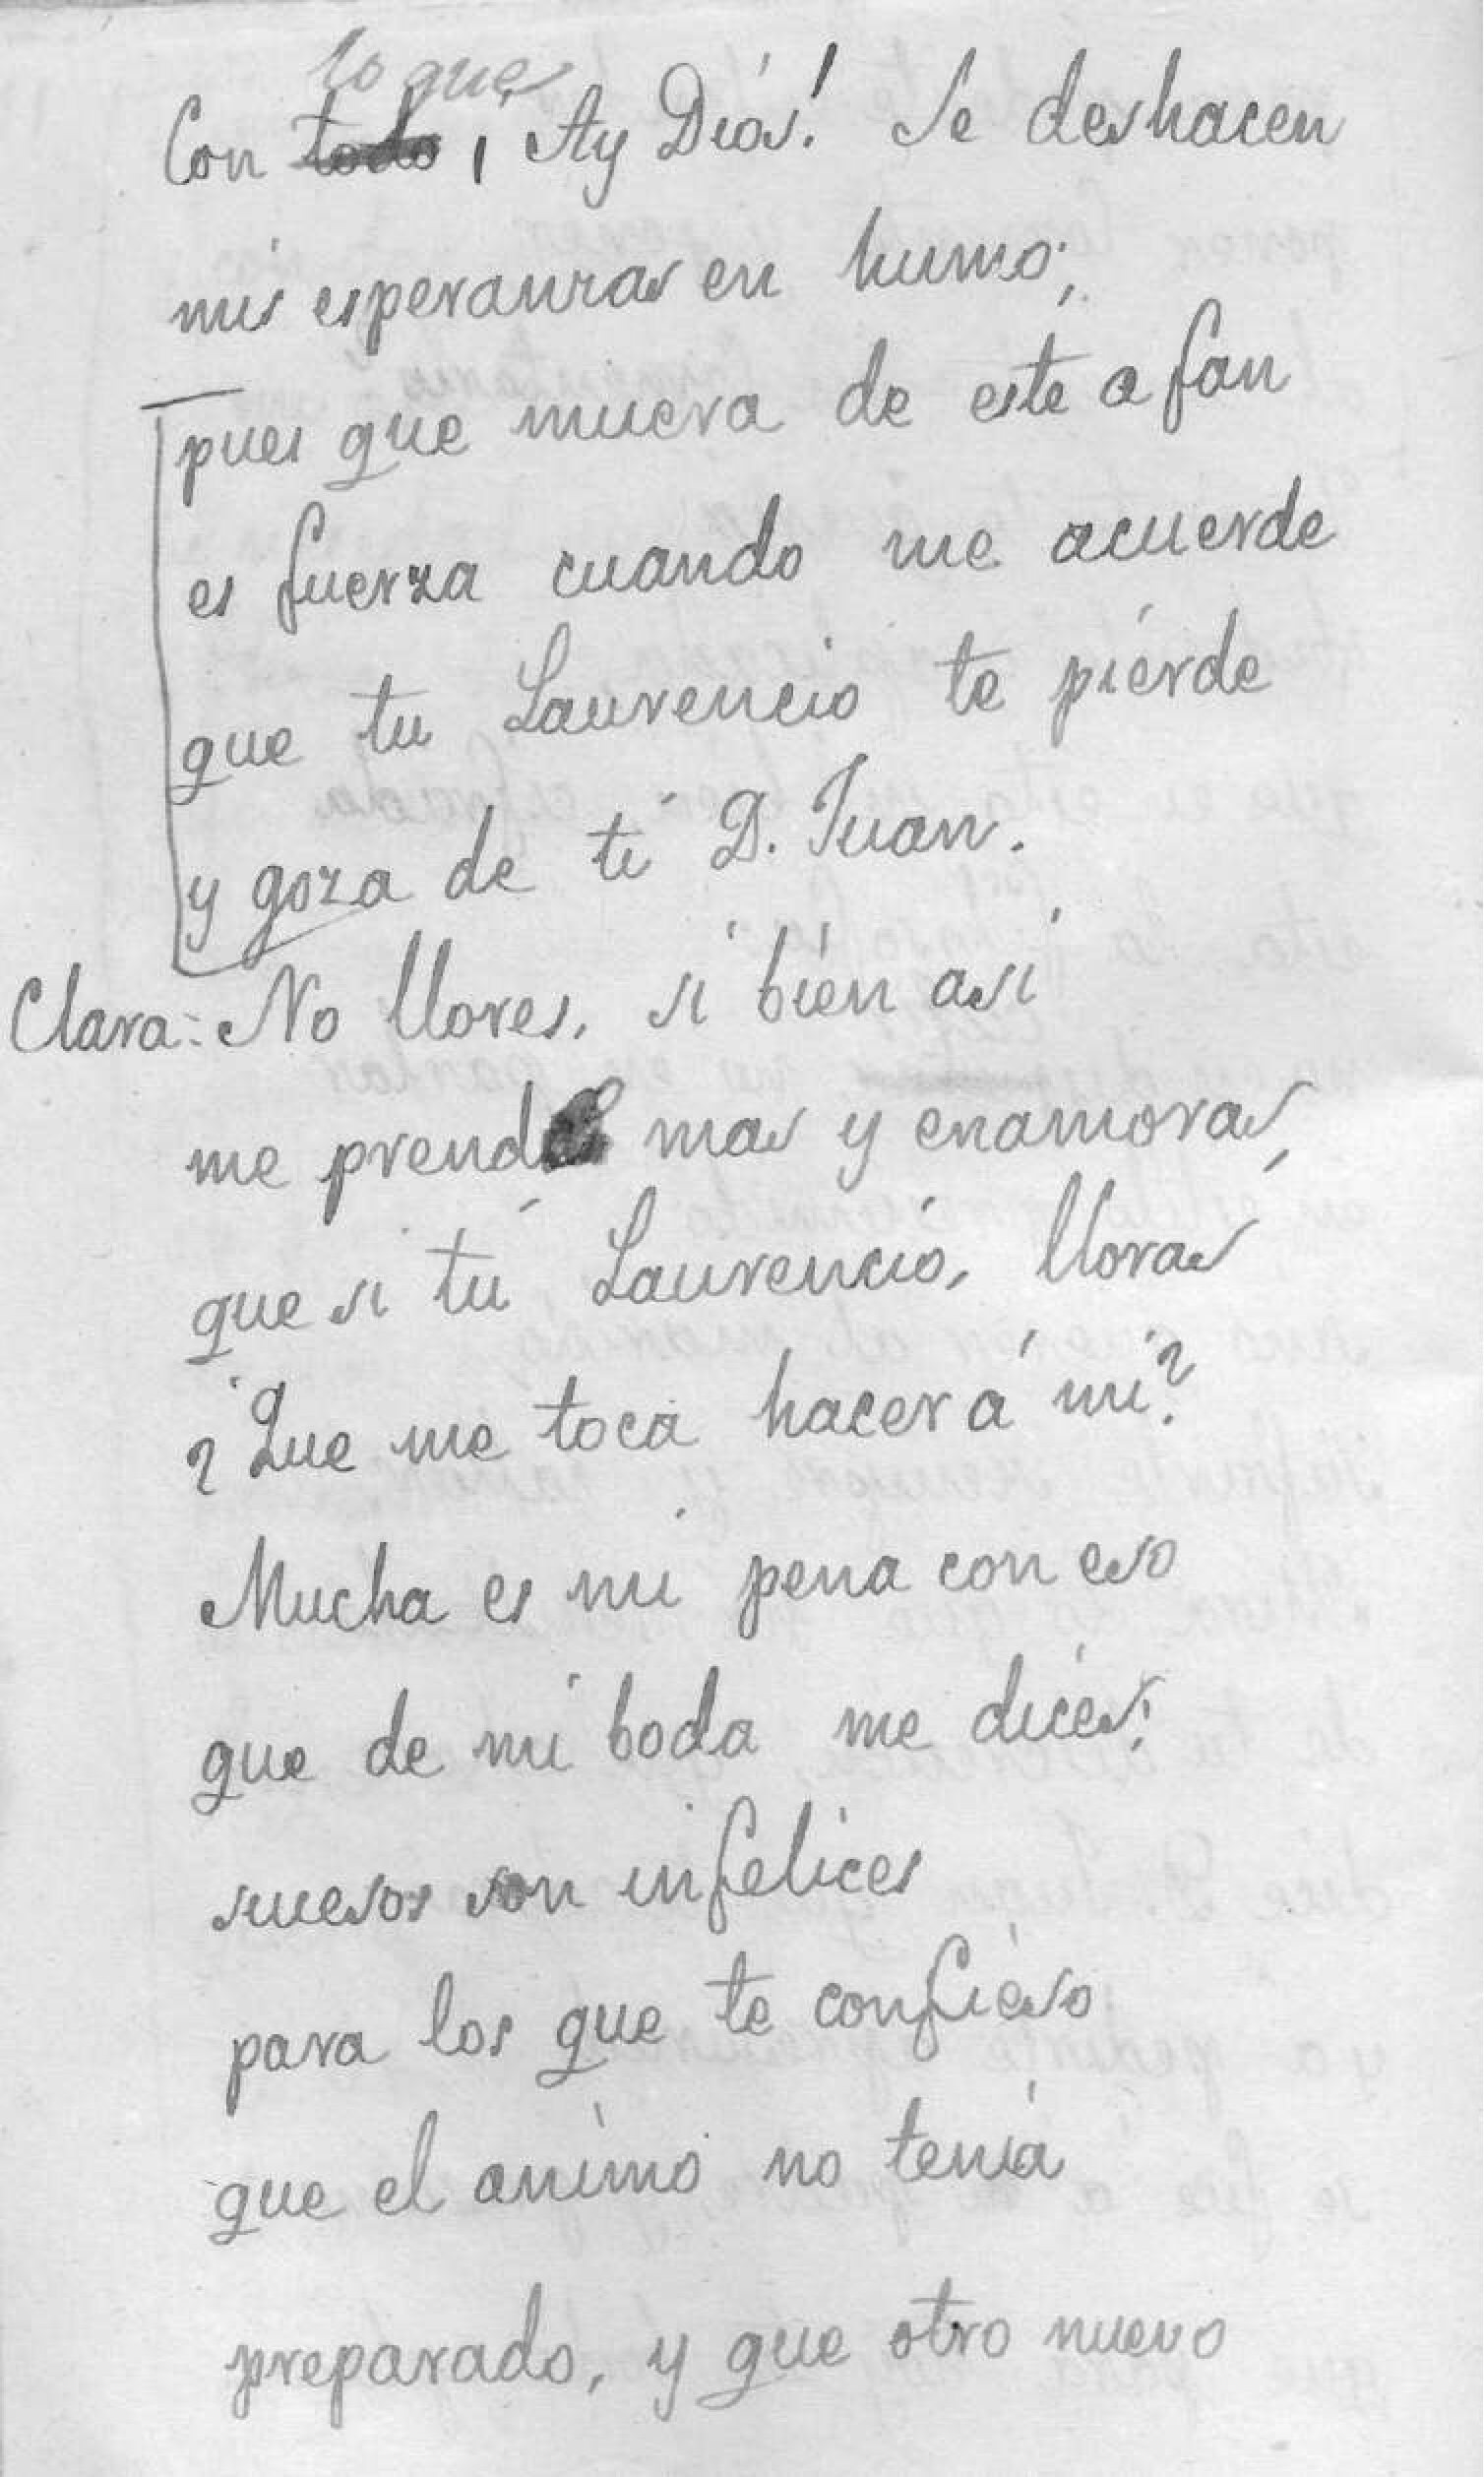 lo que
Con todo, ¡Ay Diós! Se deshacen
mis esperanzas en humo;
pues que muera de este afan
es fuerza cuando me acuerde
que tu Laurencio te piérde
y goza de ti D. Juan.
Clara: No llores, si bién asi
me prend mas y enamoras,
que si tu Laurencio, lloras
¿Que me toca hacer á mi?
Mucha es mi pena con eso
que de mi boda me dices;
suesos son infelices
para los que te confieso
que el animo no tenia
preparado, y que otro nuevo